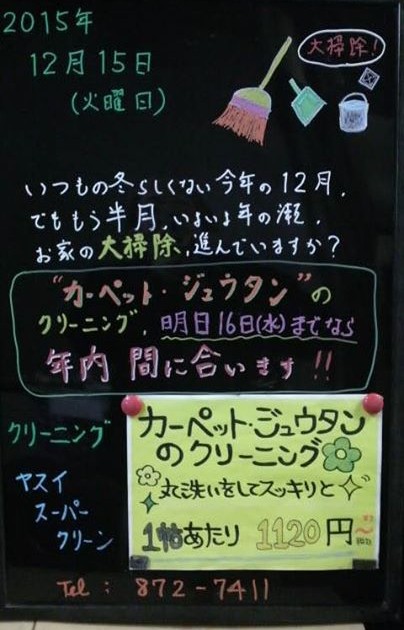 2015年
12月15日
(火曜日)
大掃除!
いつもの冬らしくない今年の12月、
でももう半月、いよいよ年の瀬、
お家の大掃除、進んでいますか?
"カーペット・ジュウタン"の
クリーニング、明日16日(水)までなら
年内 間に合います!!
クリーニング
ヤスイ
スーパー
クリーン
カーペット・ジュウタン
のクリーニング
丸洗いをしてスッキリと
1帖あたり 1120円
Tel: 872-7411